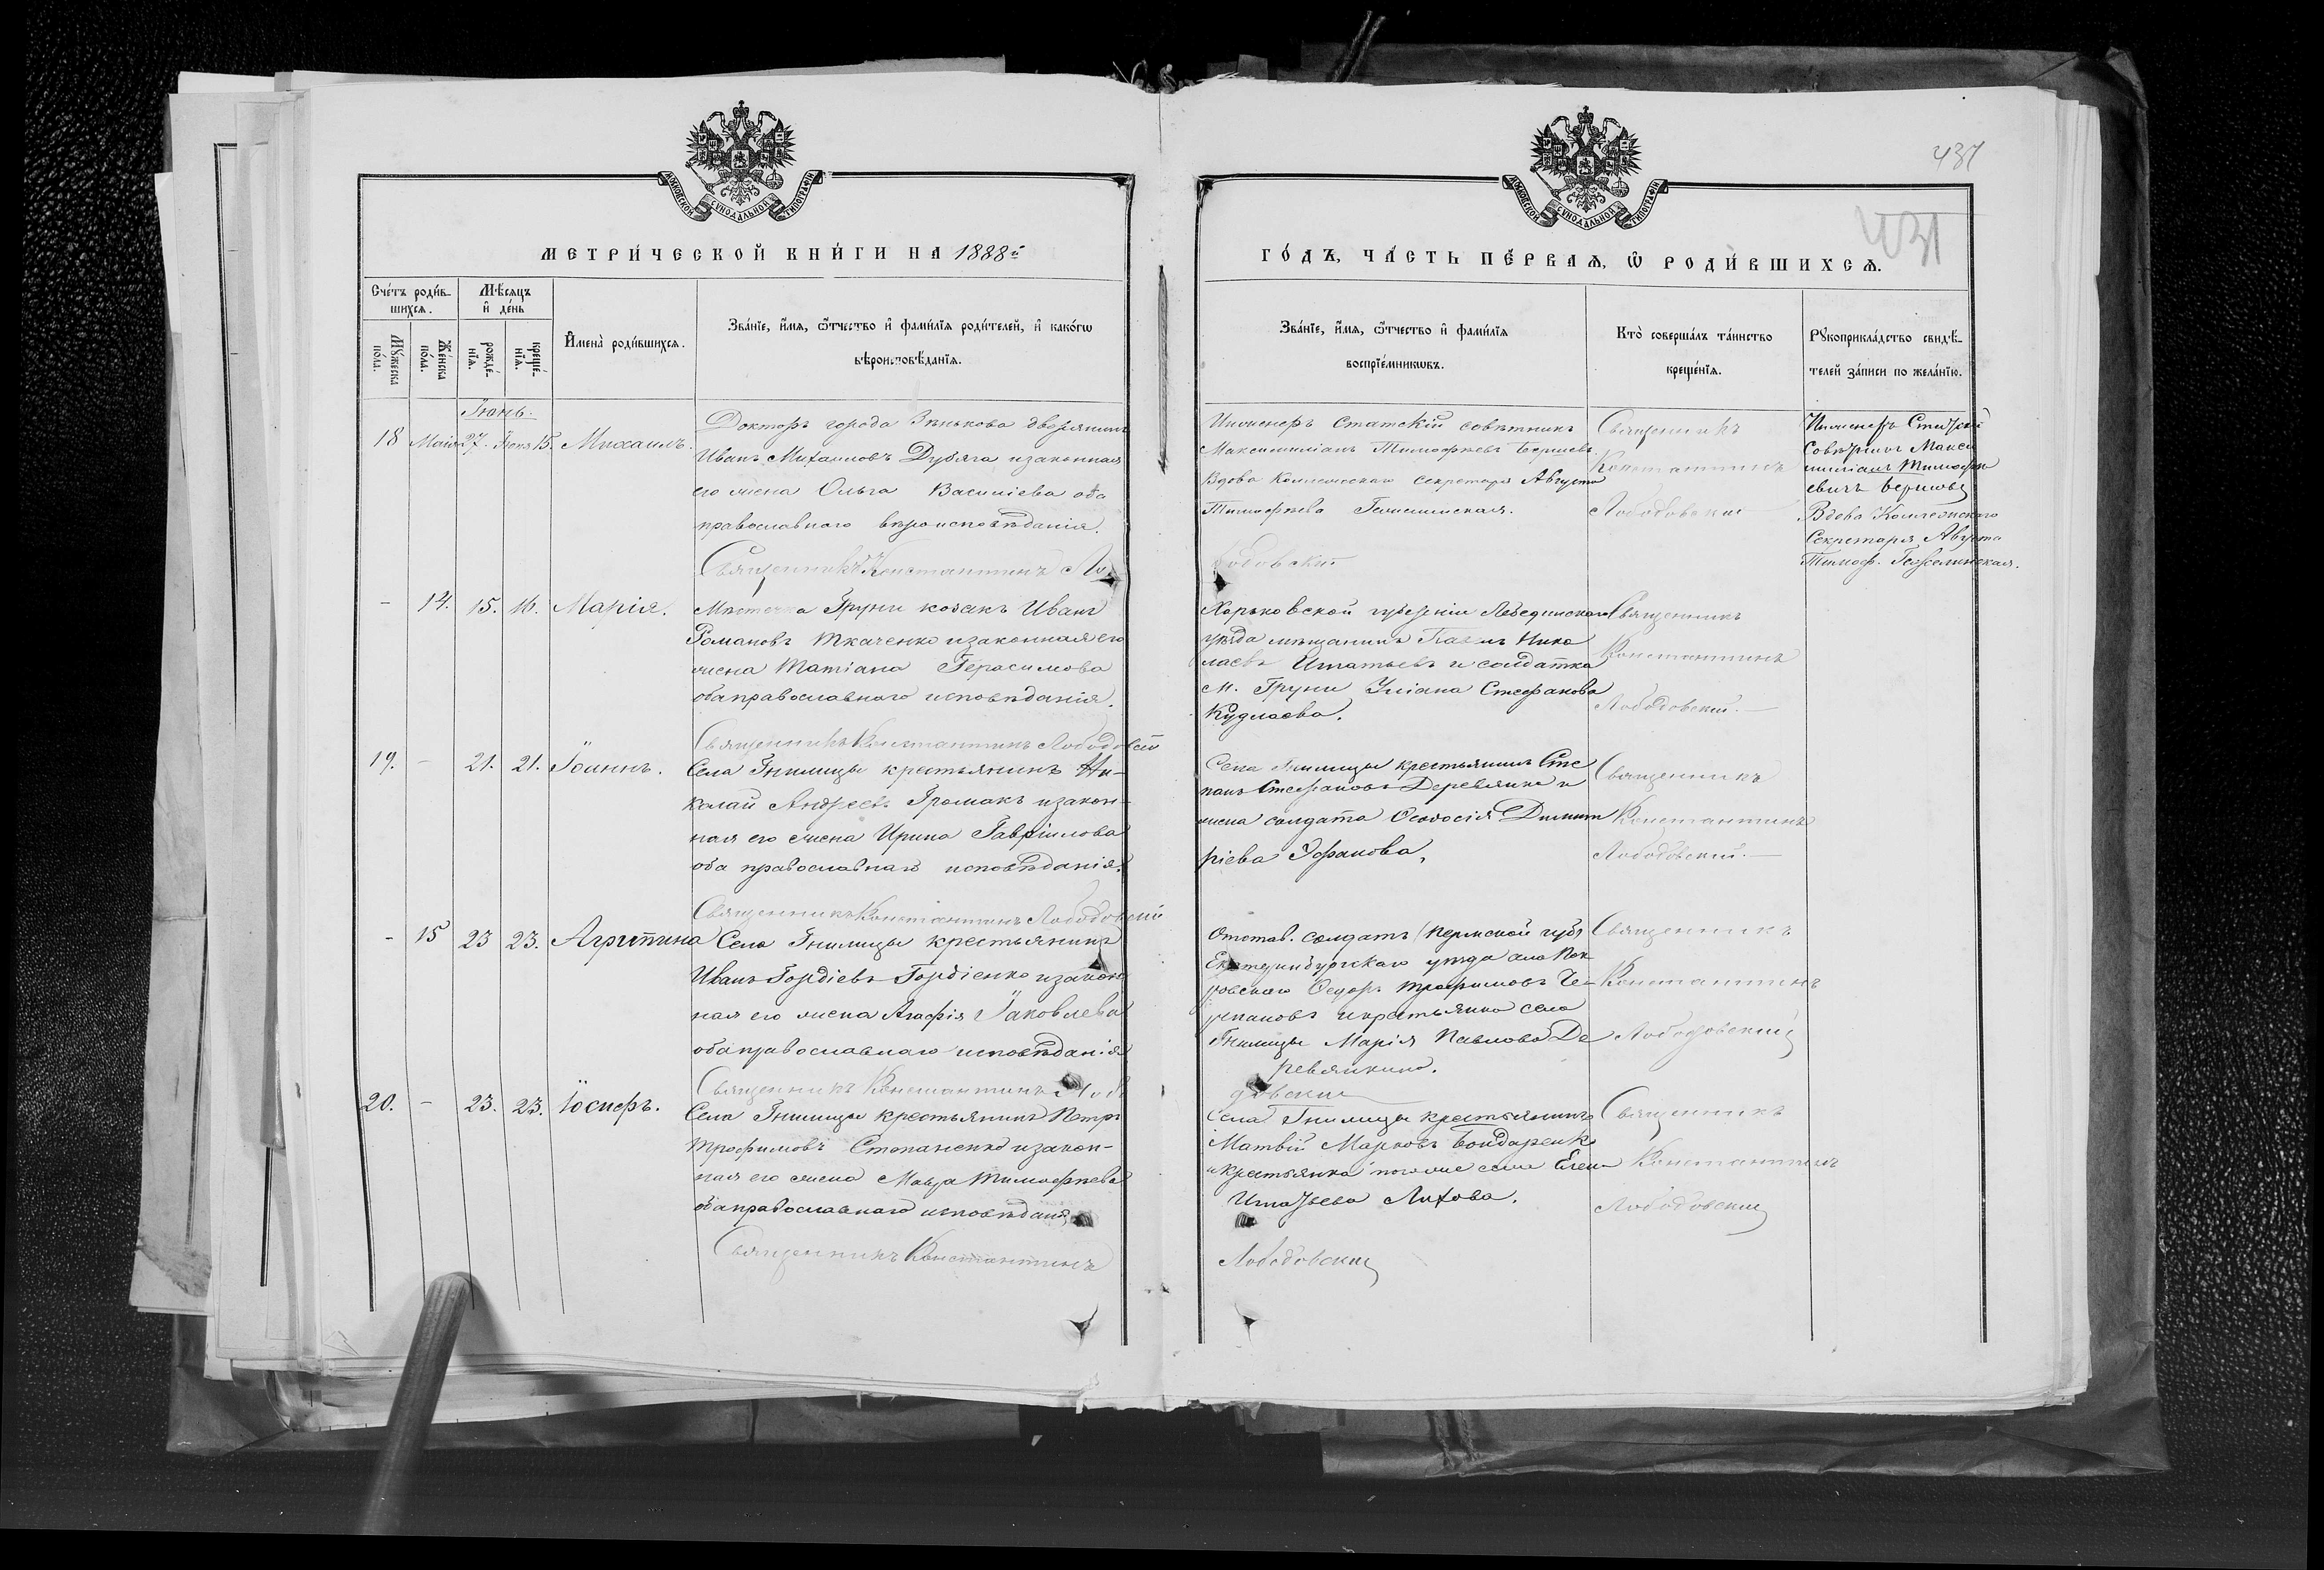 437
431
МОСКОВСКОЙ СѴНОДАЛЬНОЙ ТИПОГРАФІИ
МОСКОВСКОЙ СѴНОДАЛЬНОЙ ТИПОГРАФІИ
МЕТРИ́ЧЕСКОЙ КНИ́ГИ НА 1888й
ГО́ДЪ, ЧА́СТЬ ПЕ́РВАЯ, Ѿ РОДИ́ВШИХСЯ.
Сче́тъ роди́в-
шихся.
Мѣсяцъ
и де́нь
Му́жеска
по́ла.
Же́нска
по́ла.
рожде́-
нія.
креще́-
нія.
Имена̀ роди́вшихся.
Зва́нїе, и́мя, ѻ҆́тчество и фамі́лїя роди́телей, и како́гѡ
вѣроисповѣ́данїя.
Зва́нїе, и́мя, ѻ҆́тчество и фамі́лїя
воспрїе́мникѡвъ.
Кто̀ соверша́лъ та́инство
креще́нїя.
Рукоприкла́дство свидѣ́-
телей за́писи по жела́нїю.
Іюнь.
18 Маія 27. Іюня 15. Михаилъ.
Докторъ города Зѣнькова дворянинъ
Иванъ Михаиловъ Дубяга и законная
его жена Ольга Василіева оба
православнаго вѣроисповѣданія.
Священникъ Константинъ Ло-
Инженеръ Статскій совѣтникъ
Максимиліанъ Тимофѣевъ
Вдова Коллежскаго Секретаря Августа
Тимофѣева
бодовскій
Священникъ
Константинъ
Лободовскій
Инженеръ Статскій
Совѣтникъ Макси
миліанъ Тимофѣ
евичъ
Вдова Коллежскаго
Секретаря Августа
Тимоф.
- 14. 15. 16. Марія.
Мѣстечка Груни козакъ Иванъ
Романовъ Ткаченко и законная его
жена Татіана Герасимова
оба православнаго исповѣданія.
Священникъ Константинъ Лободовскій
Харьковской губерніи Лебединскаго
уѣзда мѣщанинъ Павелъ Нико
лаевъ Игнатьевъ и солдатка
м. Груни Уліана Стефанова
Кудлаева.
Священникъ
Константинъ
Лободовскій.
19. - 21. 21. Іоаннъ.
Села Гнилицы крестьянинъ Ни-
колай Андреевъ Громакъ и закон-
ная его жена Ирина Гавріилова
оба православнаго исповѣданія.
Священникъ Константинъ Лободовскій
Села Гнилицы крестьянинъ Сте
панъ Стефановъ Деревянко и
жена солдата Ѳеодосія Димит
ріева
Священникъ
Константинъ
Лободовскій.
- 15 23 23. Агрипина
Села Гнилицы крестьянинъ
Иванъ Гордіевъ Гордіенко и закон
ная его жена Агафія Іаковлева
оба православнаго исповѣданія
Священникъ Константинъ Лобо
Отстав. солдатъ Пермской губ.
Екатеринбургскаго уѣзда села Пок
ровскаго Ѳедоръ Трофимовъ Че-
репановъ и крестьянка села
Гнилицы Марія Павлова Де
ревянкина.
довскій
Священникъ
Константинъ
Лободовскій
20. - 23. 23. Іосифъ.
Села Гнилицы крестьянинъ Петръ
Трофимовъ Степаненко и закон-
ная его жена Мавра Тимофѣева
оба православнаго исповѣданія
Священникъ Константинъ
Села Гнилицы крестьянинъ
Матвій Марковъ Бондаренко
и крестьянка того же села Елена
Игнатьева Лихова.
Лободовскій
Священникъ
Константинъ
Лободовскій